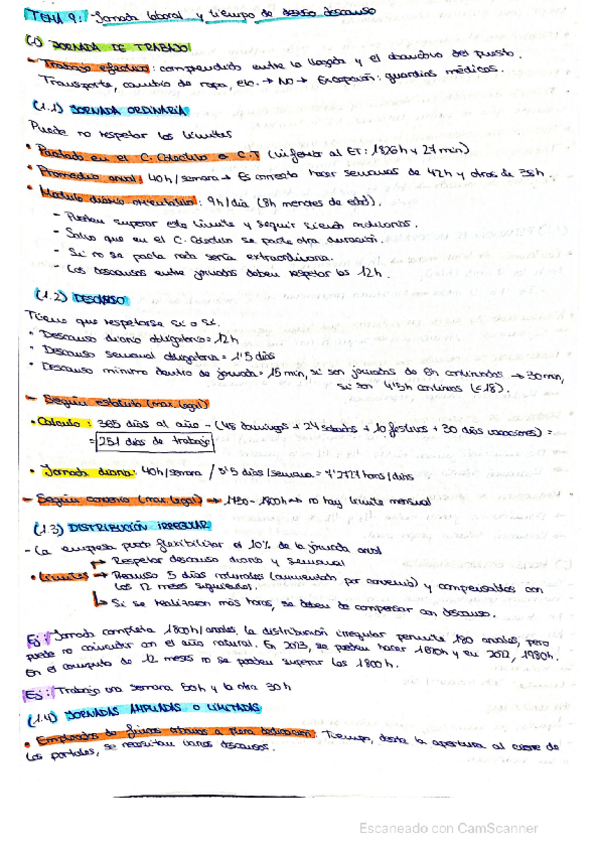 TEMA 9: Jornada laboral y tiempo de descanso
(1) JORNADA DE TRABAJO
- Trabajo efectivo: comprendido entre la llegada y el abandono del puesto.
Transporte, cambio de ropa, etc. → NO → Excepción: guardias médicas.
(1.1) JORNADA ORDINARIA
Puede no respetar los límites
• Pactado en el C. Colectivo o C.T (inferior al ET: 1826h y 27 min)
• Promedio anual: 40h/semana → Es correcto hacer semanas de 42h y otras de 38h.
• Módulo diario orientativo: 9h/día (8h menores de edad).
- Pueden superar este límite y seguir siendo ordinarias.
- Salvo que en el C. Colectivo se pacte otra duración.
- Si no se pacta nada sería extraordinaria.
- Los descansos entre jornadas deben respetar las 12h.
(1.2) DESCANSO
Tiene que respetarse si o si.
• Descanso diario obligatorio = 12h
• Descanso semanal obligatorio = 1'5 días
• Descanso mínimo dentro de jornada = 15 min, si son jornadas de 6h continuadas → 30 min,
si son 4'5h continuas (<18).
- Según estatuto (max. legal)
• Cálculo: 365 días al año - (48 domingos + 24 sábados + 10 festivos + 30 días vacaciones) =
= 251 días de trabajo
• Jornada diaria: 40h/semana / 5'5 días/semana = 7'2727 horas/días
- Según convenio (max. legal) → 1750 - 1800h → no hay límite mensual
(1.3) DISTRIBUCIÓN IRREGULAR
- La empresa puede flexibilizar el 10% de la jornada anual
→ Respetar descanso diario y semanal
• Límites → Preaviso 5 días naturales (aumentado por convenio) y compensables con
los 12 meses siguientes.
→ Si se realizaron más horas, se deben de compensar con descanso.
Ej: Jornada completa 1800h/anales, la distribución irregular permite 180 anuales, pero
puede no coincidir con el año natural. En 2013, se pueden hacer y en 2012, 1980h.
En el computo de 12 meses no se pueden superar las 1800h.
Ej: Trabajo una semana 50h y la otra 30h
(1.4) JORNADAS AMPLIADAS O LIMITADAS
• Empleados de fincas urbanas a plena dedicación: Tiempo, desde la apertura al cierre de
los portales, se necesitan varios descansos.
Escaneado con CamScanner